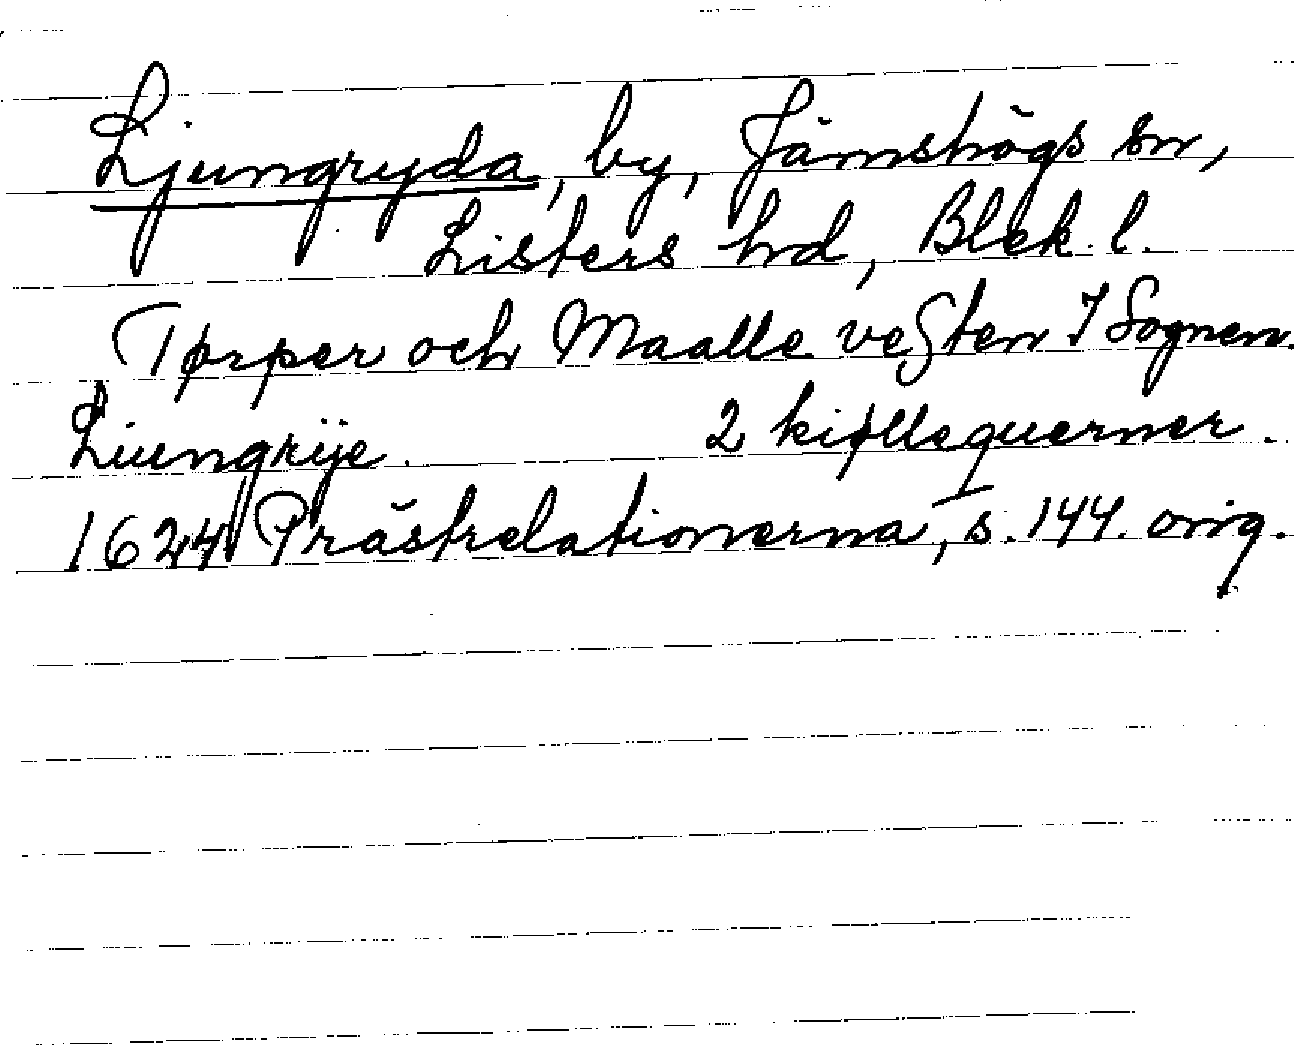 Ljungryda, by, Jämshögs sn,
Listers hd, Blek. l.
Tørper och Maalle veſten I Sognen.
Liungrÿe. 2 kiøllequerner.
1624 Prästrelationerna, I s. 144. orig.